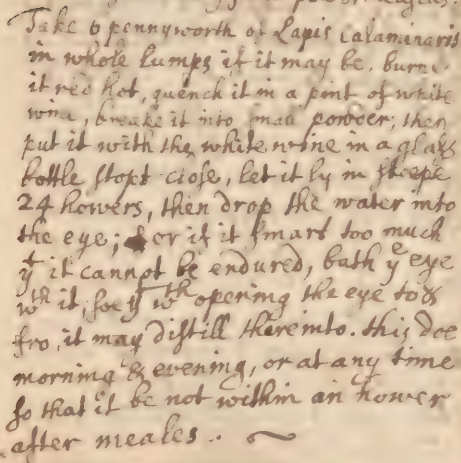 Take 6 pennyworth of Lapis calaminaris
in whole lumps if it may be. burne
it red hot, quench it in a pint of white
wine, breake it into small powder; then
put it with the white wine in a glass
bottle stopt close, let it ly in steepe
24 howers, then drop the water into
the eye; or if it smart too much
yt it cannot be endured, bath ye eye
wth it, soe yt wth opening the eye to &
fro, it may distill thereinto. this doe
morning & evening, or at any time
so that it be not within an hower
after meales..